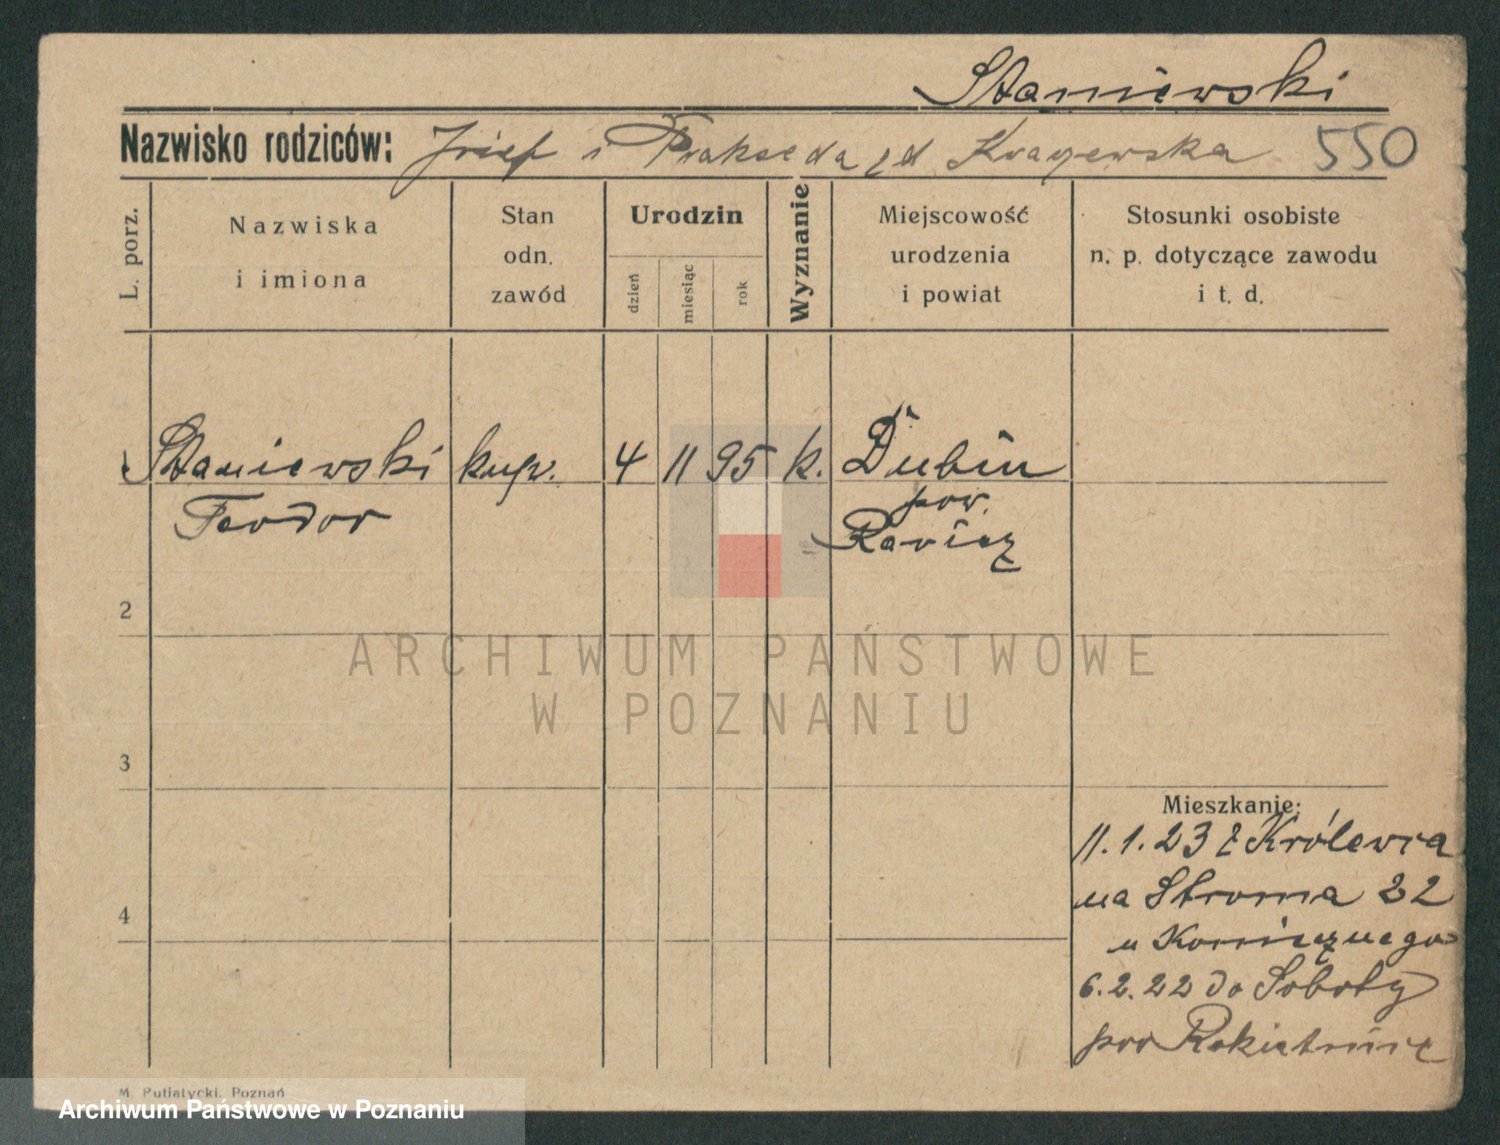 Staniewski
Nazwisko rodziców: Józef i Prakseda zd Krajewska 550
L. porz.
Nazwiska
i imiona
Stan
odn.
zawód
Urodzin
dzień
miesiąc
rok
Wyznanie
Miejscowość
urodzenia
i powiat
Stosunki osobiste
n. p. dotyczące zawodu
i t. d.
Staniewski kupw. 4 11 95 k. Dubin
Teodor pow.
Rawicz
2
3
4
Mieszkanie:
11.1.23 z Królewca
na Stroma 22
u Koniecznego
6.2.22 do Soboty
pow Rokietnicę
M. Putiatycki, Poznań
ARCHIWUM PAŃSTWOWE
W POZNANIU
Archiwum Państwowe w Poznaniu